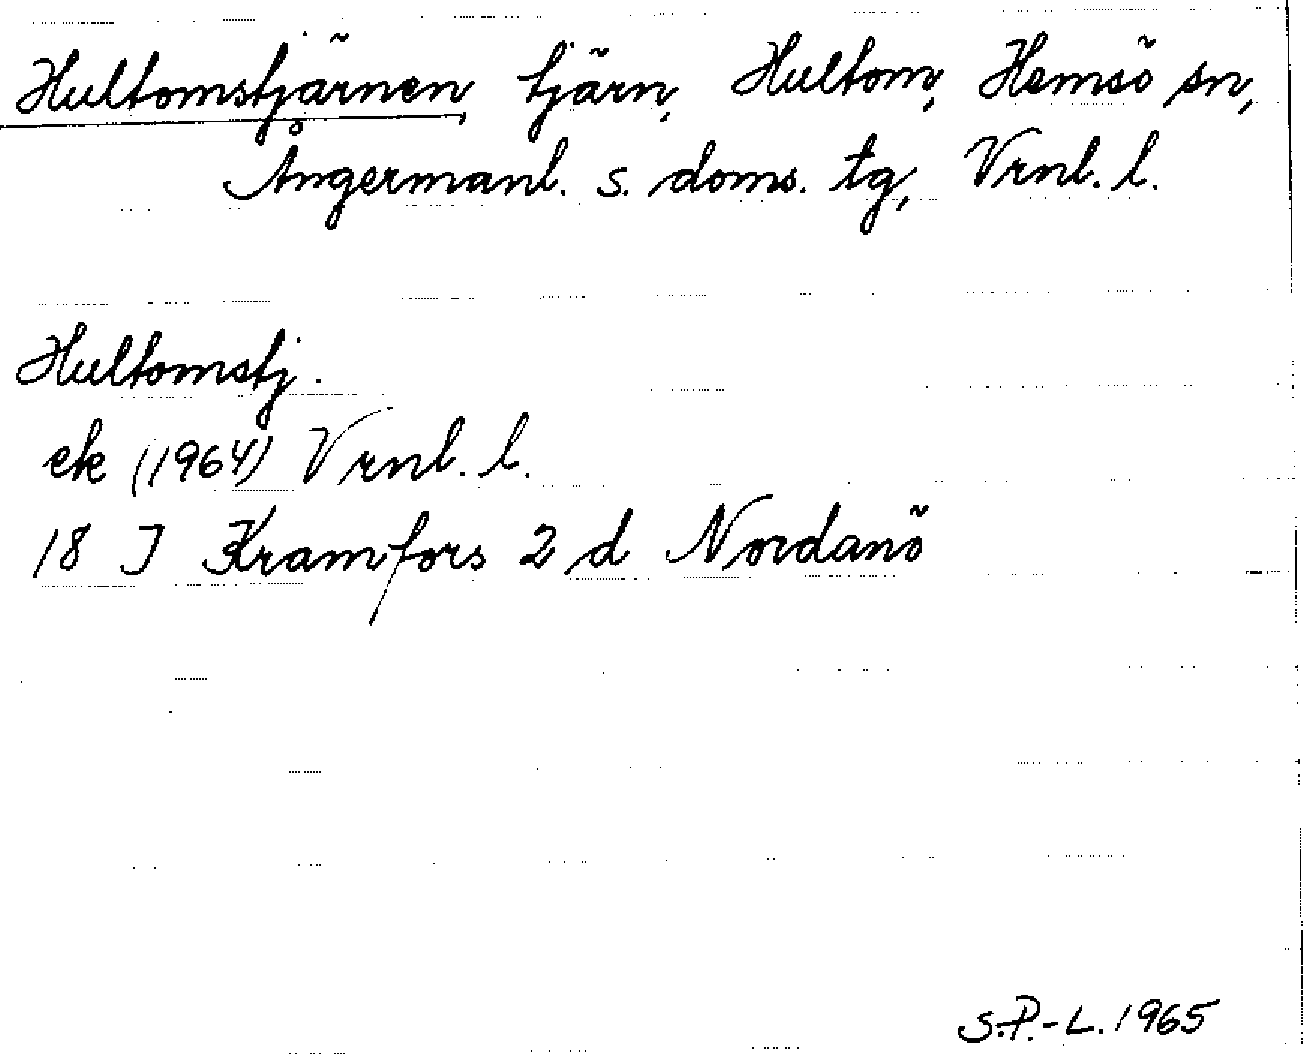 Hultomstjärnen tjärn, Hultom, Hemsö sn,
Ångermanl. s. doms. tg, Vrnl. l.
Hultomstj.
ek (1964) Vrnl. l.
18 I Kramfors 2 d Nordanö
S.P.-L. 1965